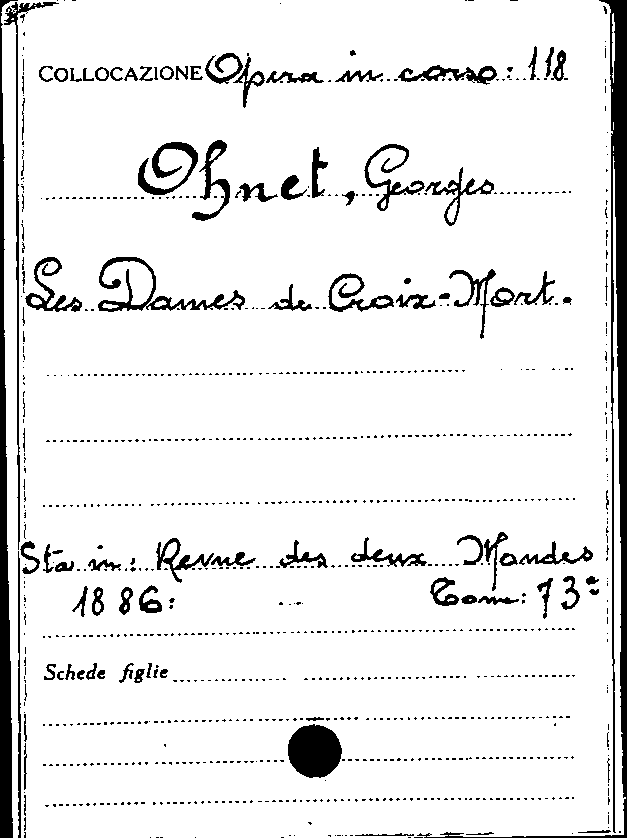 COLLOCAZIONE Opera in corso: 118
Ohnet, Georges
Les Dames de Croix-Mort.
Sta in: Revue des deux Mondes
1886: Tome: 73e
Schede figlie